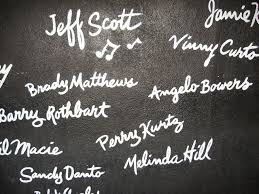 Jeff Scott
Jamie
Vinny Curto
Brady Matthews
Angelo Bowers
Barry Rothbart
Perry Kurtz
Macie
Melinda Hill
Sandy Danto